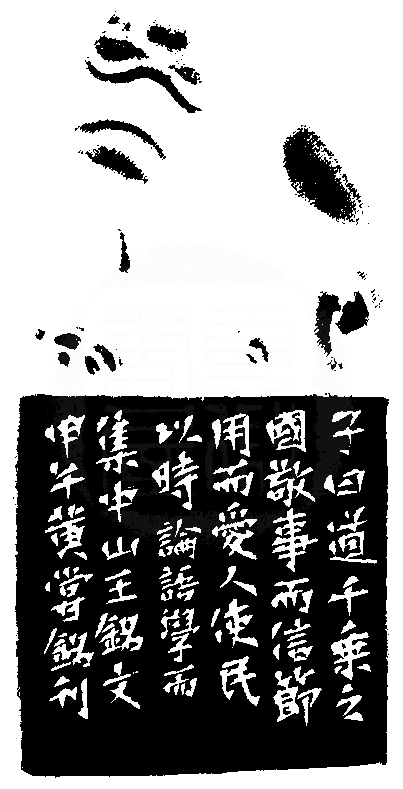 子曰道千乘之
國敬事而信節
用而愛人使民
以時論語學而
集中山王銘文
甲午黄嘗銘刊